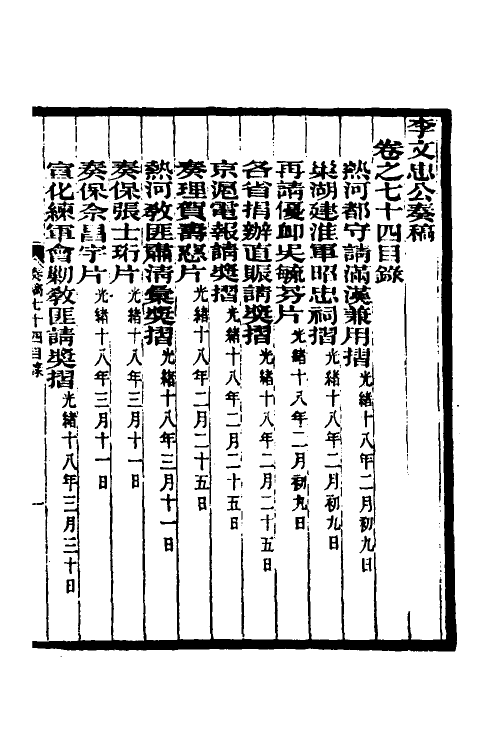 李文忠公奏稿
卷之七十四目錄
熱河都守請滿漢兼用摺光緒十八年二月初九日
巢湖建淮軍昭忠祠摺光緒十八年二月初九日
再請優卹吳毓芬片光緒十八年二月初九日
各省捐辦直賑請獎摺光緒十八年二月二十五日
京滬電報請獎摺光緒十八年二月二十五日
奏理賀壽慈片光緒十八年二月二十五日
熱河教匪肅清彙獎摺光緒十八年三月十一日
奏保張士珩片光緒十八年三月十一日
奏保佘昌宇片光緒十八年三月十一日
宣化練軍會勦教匪請獎摺光緒十八年三月三十日
奏稿七十四目錄 一